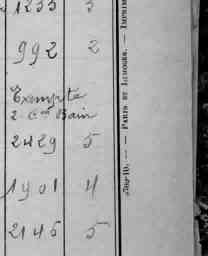 1233 3
992 2
Exempte
2 Cᵉ Bain
2429 5
1901 4
2145 5
5702-10. — — PARIS ET LIMOGES. — IMPRIM